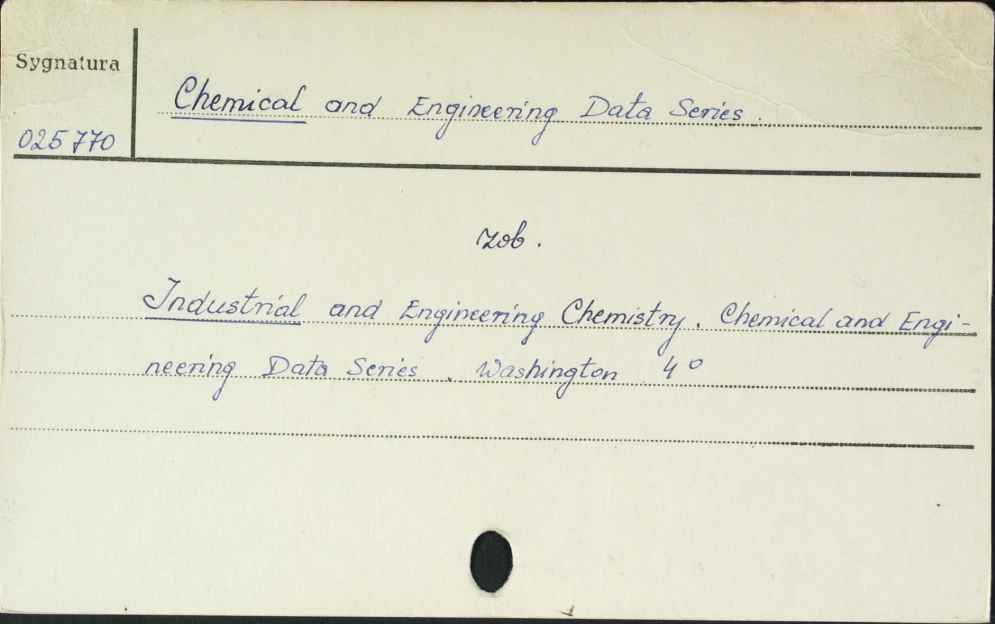 Sygnatura
Chemical and Engineering Data Series.
025770
zob.
Industrial and Engineering Chemistry. Chemical and Engi-
neering Data Series. Washington 4°